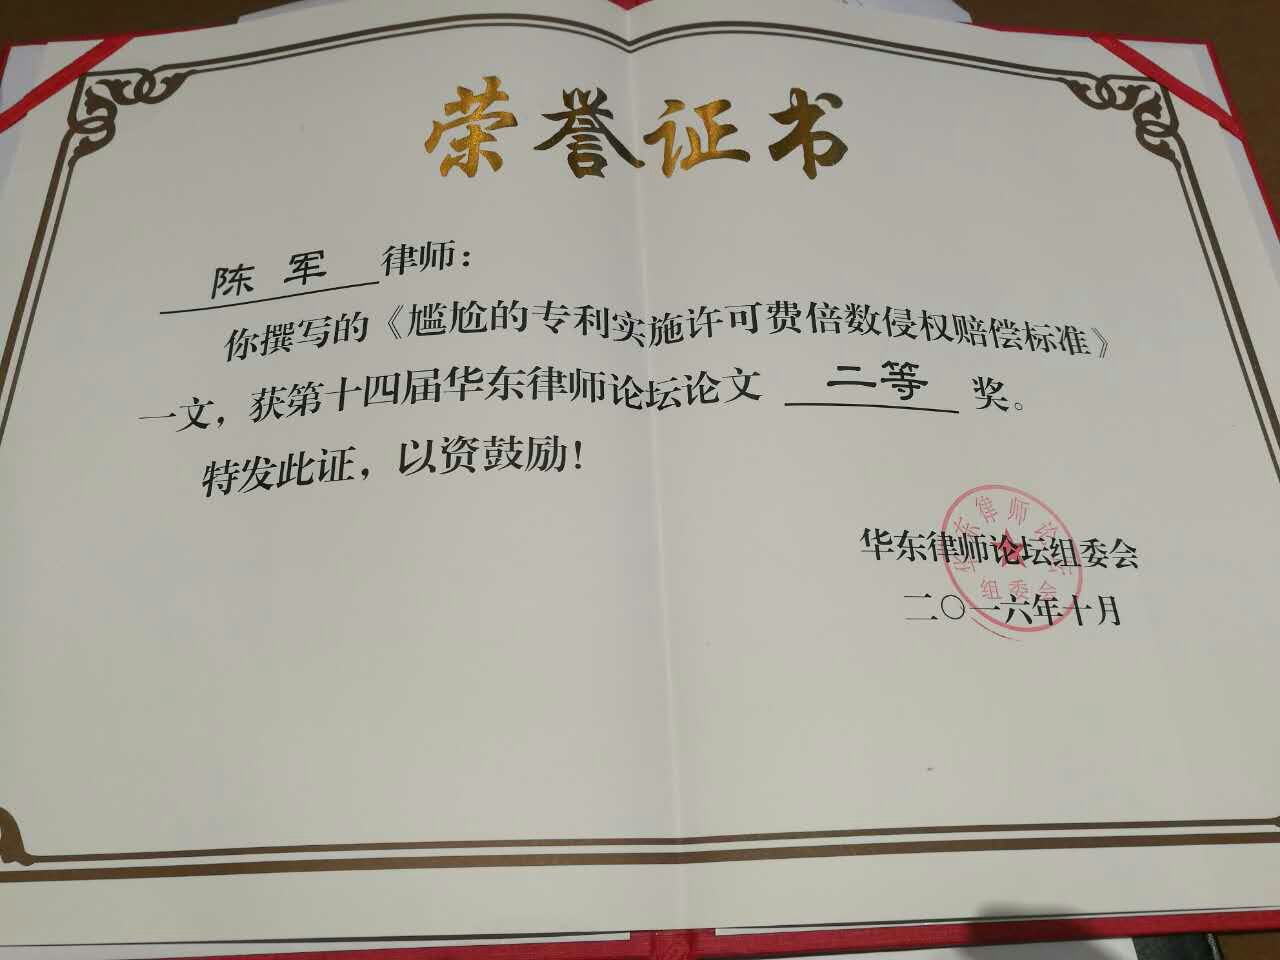 荣誉证书
陈军律师：
你撰写的《尴尬的专利实施许可费倍数侵权赔偿标准》
一文，获第十四届华东律师论坛论文 二等 奖。
特发此证，以资鼓励！
华东律师论坛组委会
二〇一六年十月
华东律师论坛
组委会